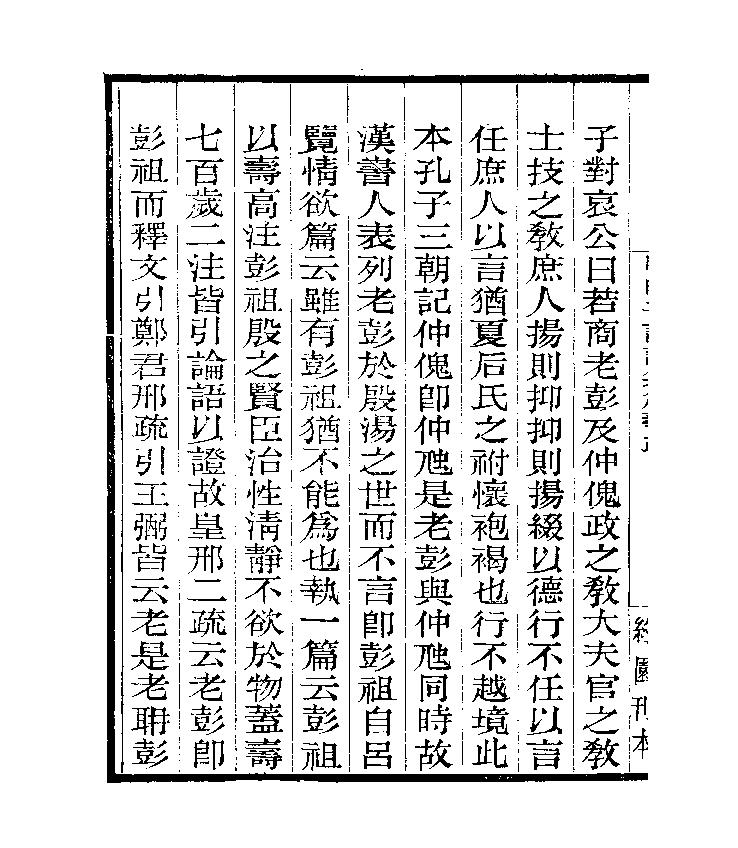 子對哀公曰若商老彭及仲傀政之敎大夫官之敎
士技之敎庶人揚則抑抑則揚綴以德行不任以言
任庶人以言猶夏后氏之祔懷袍褐也行不越境此
本孔子三朝記仲傀卽仲虺是老彭與仲虺同時故
漢書人表列老彭於殷湯之世而不言卽彭祖自呂
覽情欲篇云雖有彭祖猶不能爲也執一篇云彭祖
以壽高注彭祖殷之賢臣治性淸靜不欲於物蓋壽
七百歲二注皆引論語以證故皇邢二疏云老彭卽
彭祖而釋文引鄭君邢疏引王弼皆云老是老耼彭